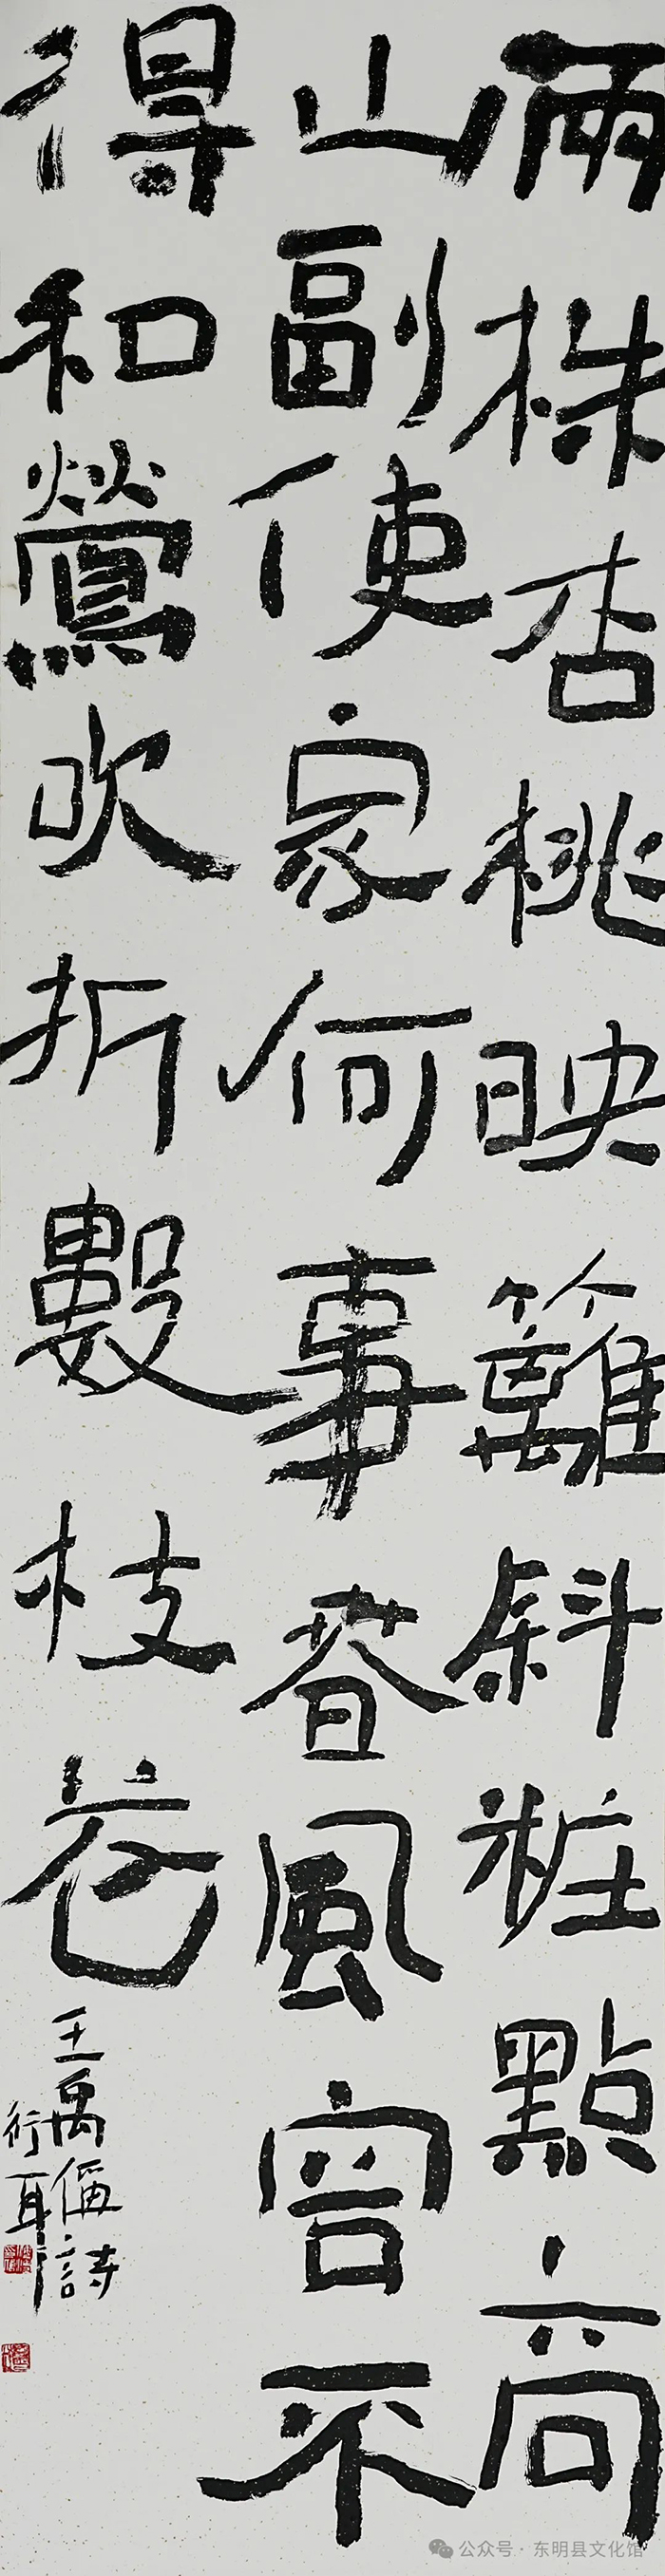 兩株杏桃映籬斜粧點商
山副使家何事春風容不
得和鶯吹折數枝花
王禹偁詩
公众号·东明县文化馆